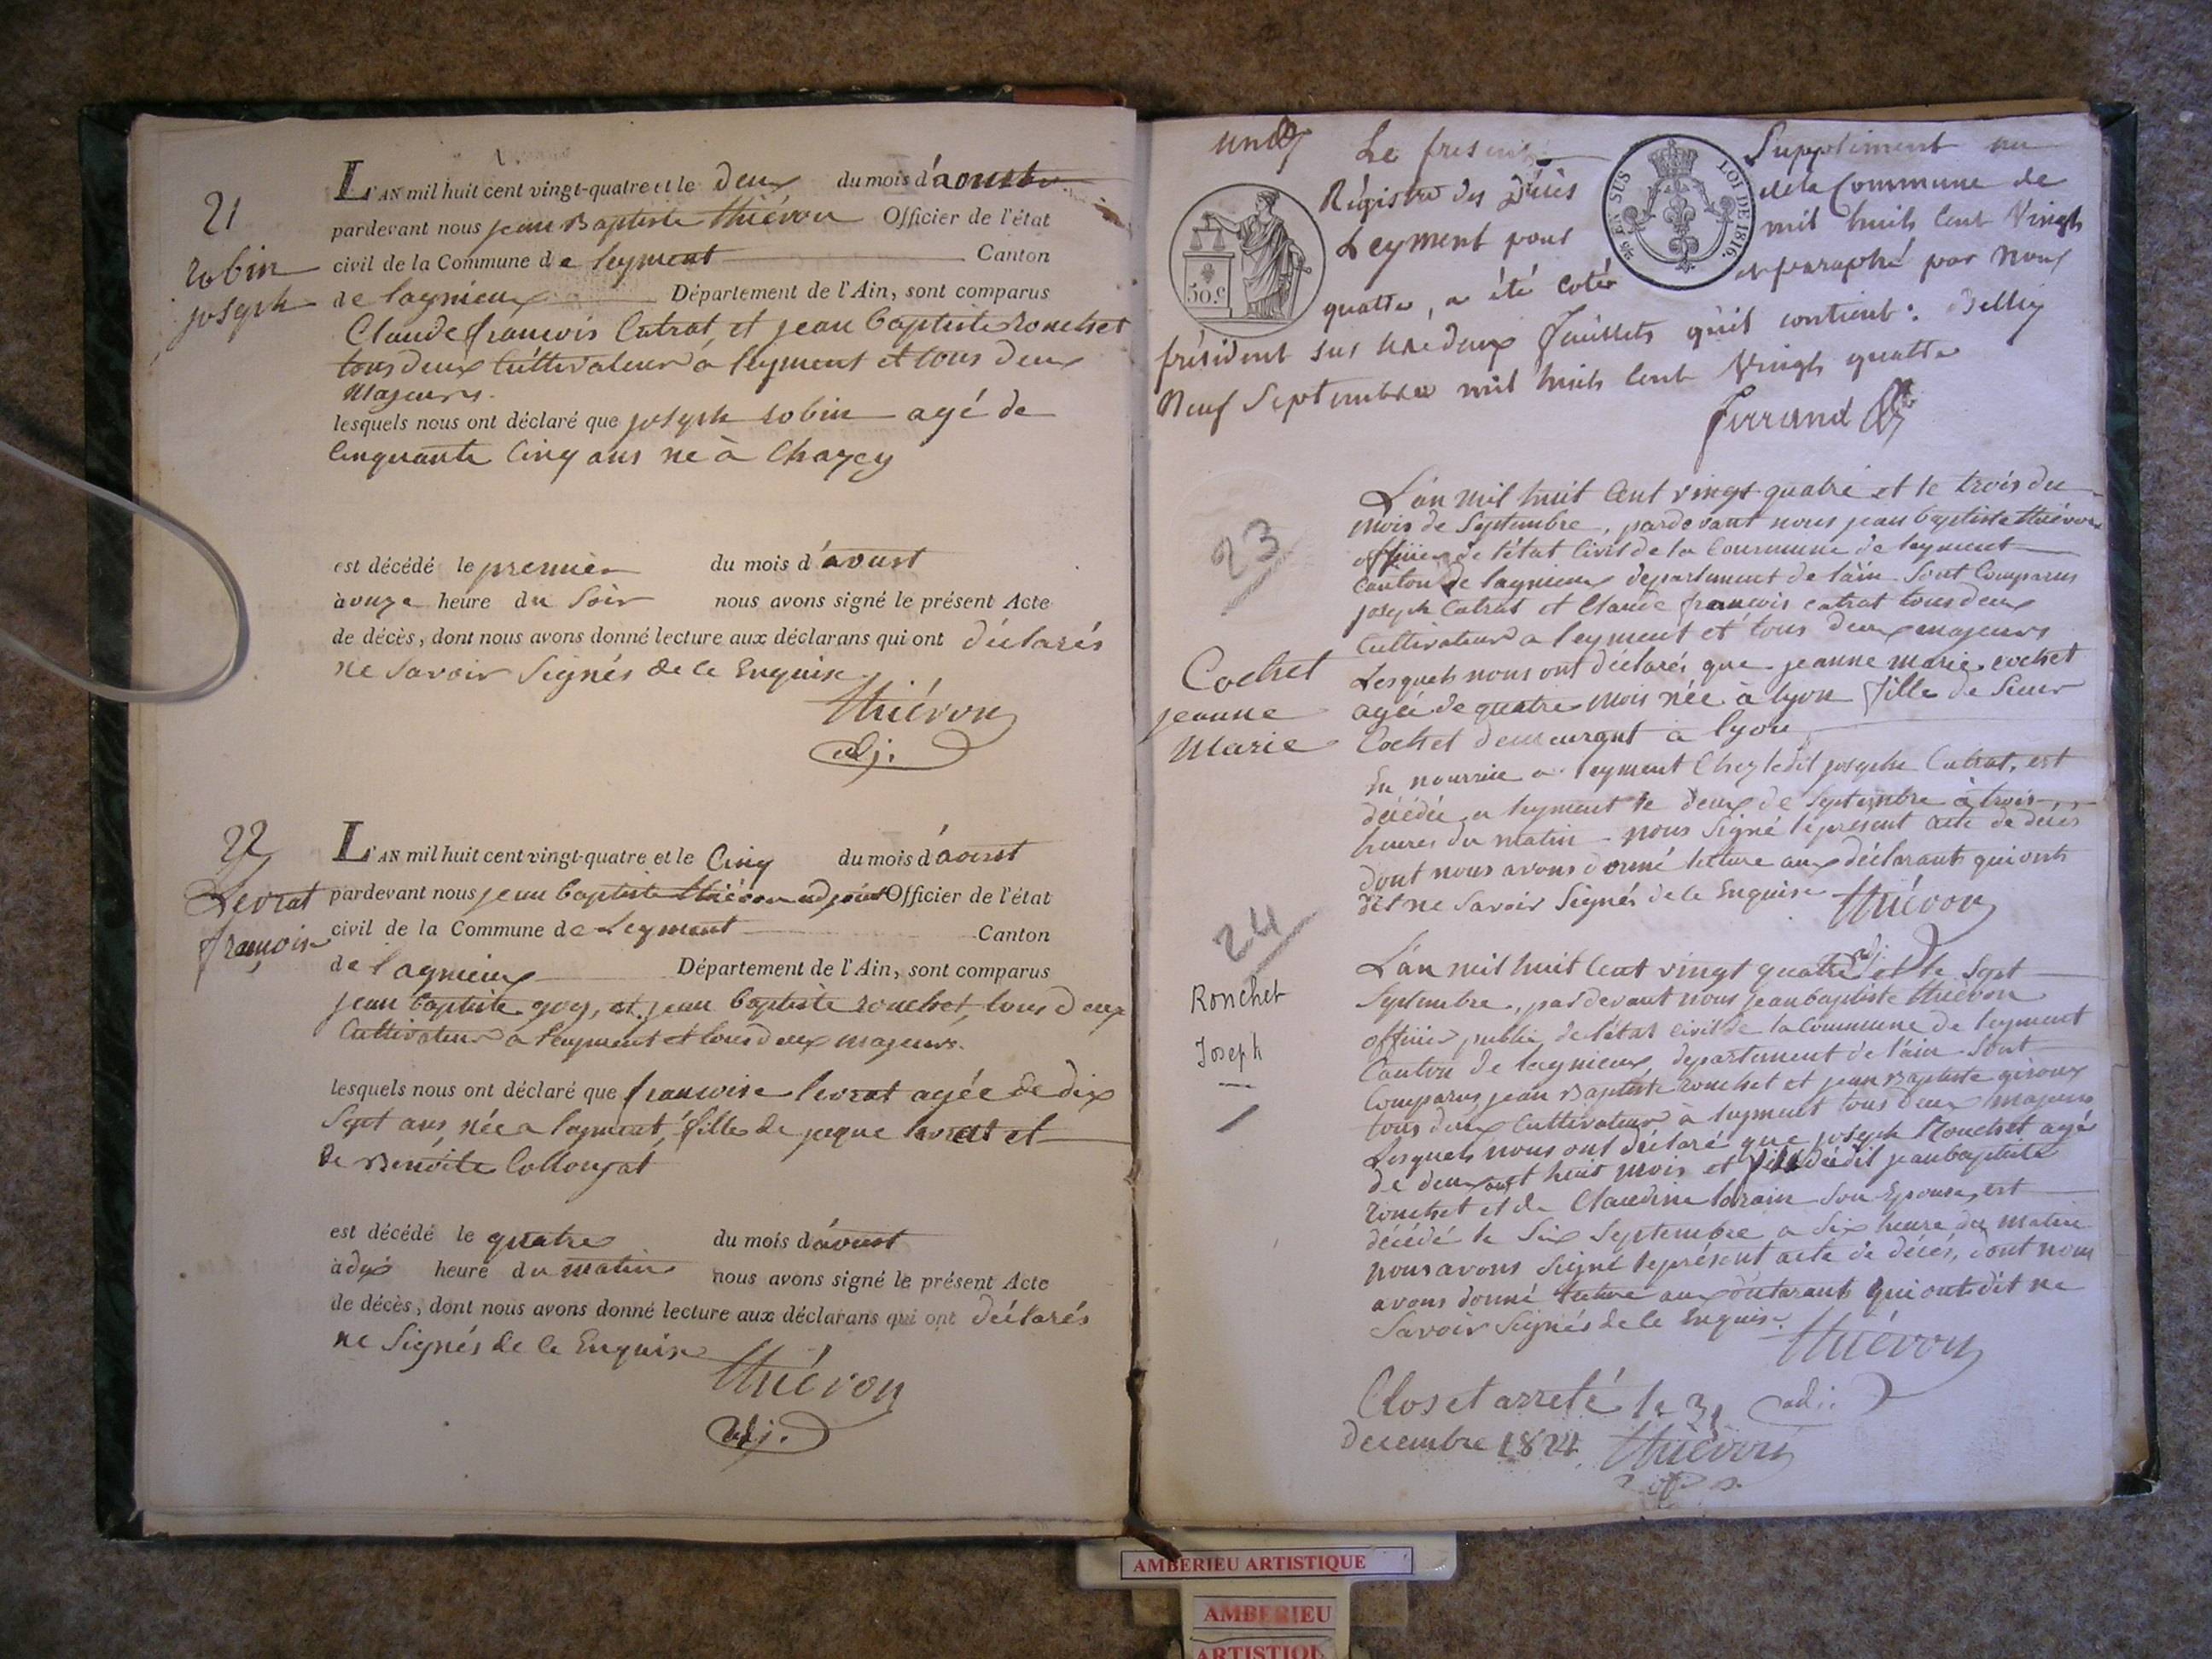 21
robin
joseph
L'AN mil huit cent vingt-quatre et le deux du mois d'aoust
pardevant nous jean Baptiste thiévon Officier de l'état
civil de la Commune de leyment Canton
de lagnieux Département de l'Ain, sont comparus
Claude françois Catrat, et jean baptiste Ronchet
tous deux Cultivateur à leyment et tous deux
Majeurs.
lesquels nous ont déclaré que joseph robin agé de
Cinquante Cinq ans né à Chazey
est décédé le premier du mois d'avust
à onze heure du Soir nous avons signé le présent Acte
de décès, dont nous avons donné lecture aux déclarans qui ont déclarés
ne Savoir Signés de ce Enquise
thiévon
adj.
22
Levrat
françoise
L'AN mil huit cent vingt-quatre et le Cinq du mois d'avust
pardevant nous jean baptiste thiévon adjoint Officier de l'état
civil de la Commune de Leyment Canton
de lagnieux Département de l'Ain, sont comparus
jean baptiste goy, et jean baptiste ronchet, tous deux
Cultivateur à leyment et tous deux majeurs.
lesquels nous ont déclaré que françoise levrat agée de dix
Sept ans, née a leyment, fille de jaque levrat et
de Benoite Collonjat
est décédé le quatre du mois d'avust
à dix heure du matin nous avons signé le présent Acte
de décès, dont nous avons donné lecture aux déclarans qui ont déclarés
ne Signés de ce Enquise
thiévon
adj.
Le présent Supplément au
Régistre des Décès de la Commune de
Leyment pour mil huit Cent Vingt
quatre, a été coté et paraphé par Nous
président sur les deux feuillets qu'il contient : Belley
Neuf Septembre mil huit Cent Vingt quatre
ferrand
50.c
EN SUS
LOI DE 1816.
23
Cochet
jeanne
Marie
L'an mil huit Cent vingt quatre et le trois du
mois de Septembre, pardevant nous jean baptiste thiévon
officier de l'état Civil de la Commune de leyment
Canton de lagnieux departement de l'ain Sont Comparus
joseph Catrat et Claude françois catrat tous deux
Cultivateur a leyment et tous deux majeurs
Lesquels nous ont déclarés que jeanne marie cochet
agée de quatre mois née à lyon fille de Sieur
Cochet demeurant à lyon
En nourrice a leyment Chez ledit joseph Catrat, est
décédée a leyment le deux de Septembre à trois
heures du matin - nous Signé le présent acte de décès
dont nous avons donné lecture aux déclarants qui ont
dit ne Savoir Signés de ce Enquise thiévon
adj.
24
Ronchet
Joseph
L'an mil huit Cent vingt quatre et le Sept
Septembre, pardevant nous jean baptiste thiévon
officier public de l'état civil de la Commune de leyment
Canton de lagnieux, departement de l'ain Sont
Comparus jean Baptiste ronchet et jean Baptiste giroux
tous deux Cultivateur à leyment tous deux majeurs
Lesquels nous ont déclaré que joseph Ronchet agé
de deux ans huit mois et fils dudit jean baptiste
ronchet et de Claudine lorain Son Epouse, est
décédé le Six Septembre a Six heure du matin
nous avons Signé le présent acte de décès, dont nous
avons donné lecture aux déclarants qui ont dit ne
Savoir Signés de ce Enquis.
thiévon
adj.
Clos et arreté le 31
decembre 1824 thiévon
AMBERIEU ARTISTIQUE
AMBERIEU
ARTISTIQU